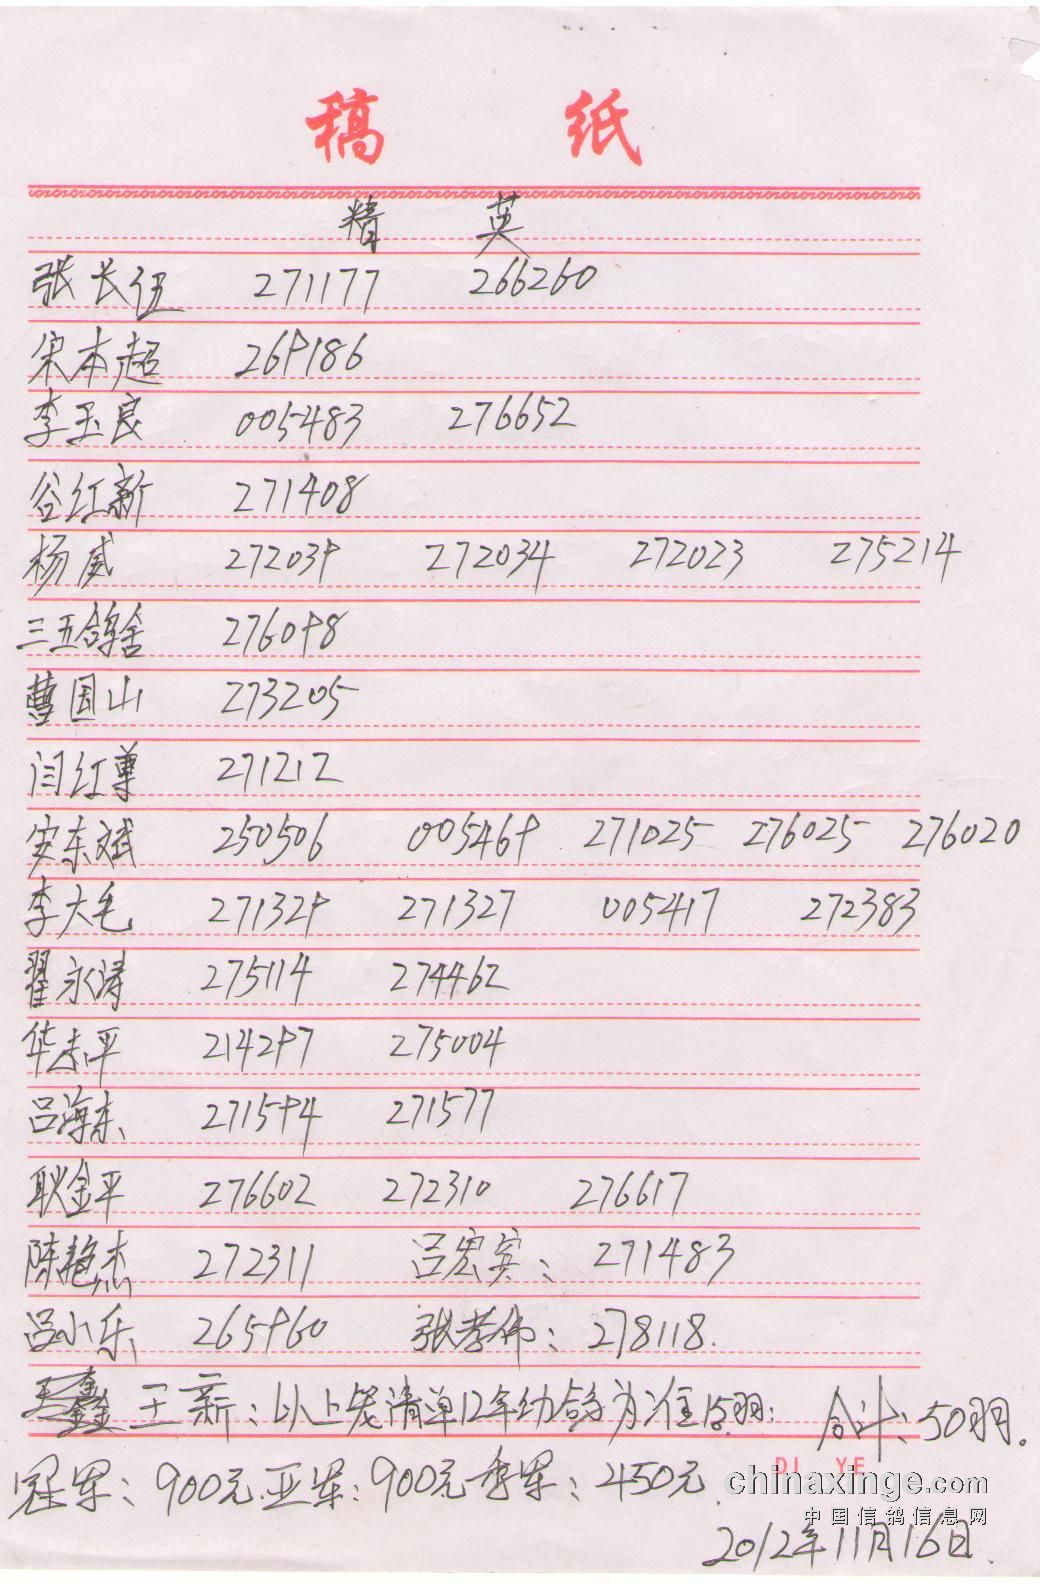 稿 纸
精 英
张长伍 271177 266260
宋本超 269186
李玉良 005483 276652
谷红新 271408
杨威 272039 272034 272023 275214
三五鸽舍 276098
曹国山 273205
闫红尊 271212
安东斌 250506 005469 271025 276025 276020
李大毛 271329 271327 005417 272383
翟永涛 275114 274462
华志平 214297 275004
吕海东 271594 271577
耿金平 276602 272310 276617
陈艳杰 272311 吕宏宾: 271483
吕小乐 265960 张孝伟: 278118.
王新: 以上笼清单12年幼鸽为准15羽: 合计: 50羽.
冠军: 900元.亚军: 900元季军: 450元.
DI YE
chinaxinge.com
中国信鸽信息网
2012年11月16日.